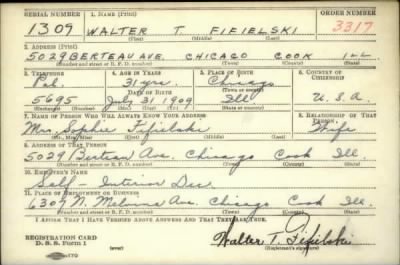 SERIAL NUMBER 1. NAME (Print) ORDER NUMBER
1309 WALTER T. FIFIELSKI 3317
(First) (Middle) (Last)
2. ADDRESS (Print)
5029 BERTEAU AVE. CHICAGO COOK ILL
(Number and street or R. F. D. number) (Town) (County) (State)
3. TELEPHONE 4. AGE IN YEARS 5. PLACE OF BIRTH 6. COUNTRY OF CITIZENSHIP
Pal. 31 yrs. Chicago
DATE OF BIRTH (Town or county)
5695 July 31 1909 Ill U.S.A.
(Exchange) (Number) (Mo.) (Day) (Yr.) (State or country)
7. NAME OF PERSON WHO WILL ALWAYS KNOW YOUR ADDRESS 8. RELATIONSHIP OF THAT PERSON
Mrs. Sophie Fifielski Wife
(Mr., Mrs., Miss) (First) (Middle) (Last)
9. ADDRESS OF THAT PERSON
5029 Berteau Ave. Chicago Cook Ill.
(Number and street or R. F. D. number) (Town) (County) (State)
10. EMPLOYER'S NAME
Self - Interior Dec.
11. PLACE OF EMPLOYMENT OR BUSINESS
6307 N. Melvina Ave. Chicago Cook Ill.
(Number and street or R. F. D. number) (Town) (County) (State)
I AFFIRM THAT I HAVE VERIFIED ABOVE ANSWERS AND THAT THEY ARE TRUE.
REGISTRATION CARD
D. S. S. Form 1 (over) Walter T. Fifielski
(Registrant's signature)